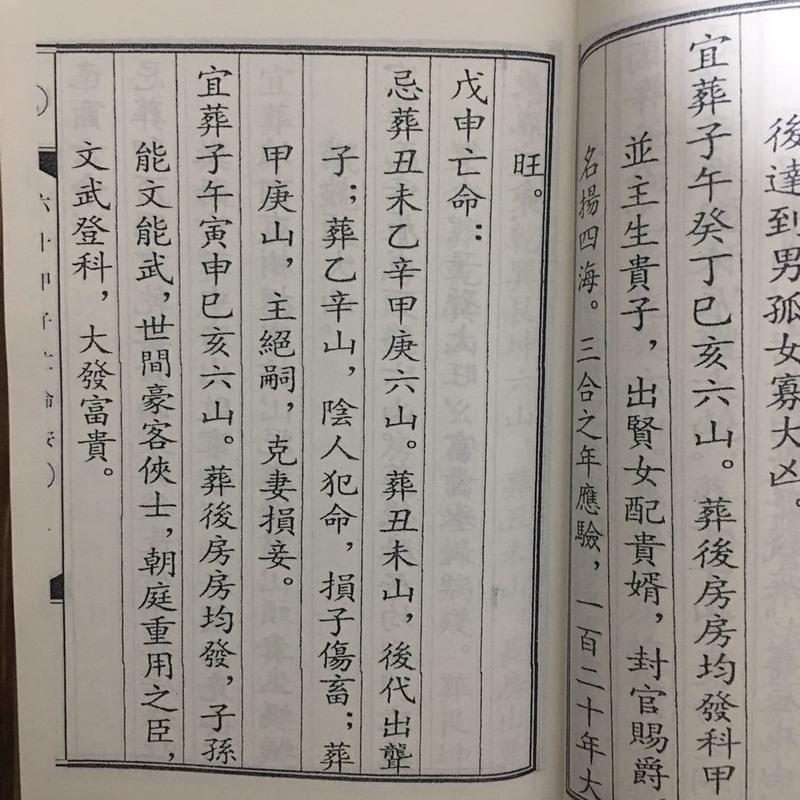 後達到男孤女寡大凶。
宜葬子午癸丁巳亥六山。葬後房房均發科甲
並主生貴子，出賢女配貴婿，封官賜爵
名揚四海。三合之年應驗，一百二十年大
旺。
戊申亡命：
忌葬丑未乙辛甲庚六山。葬丑未山，後代出聾
子；葬乙辛山，陰人犯命，損子傷畜；葬
甲庚山，主絕嗣，克妻損妾。
宜葬子午寅申巳亥六山。葬後房房均發，子孫
能文能武，世間豪客俠士，朝庭重用之臣，
文武登科，大發富貴。
六十甲子亡命安